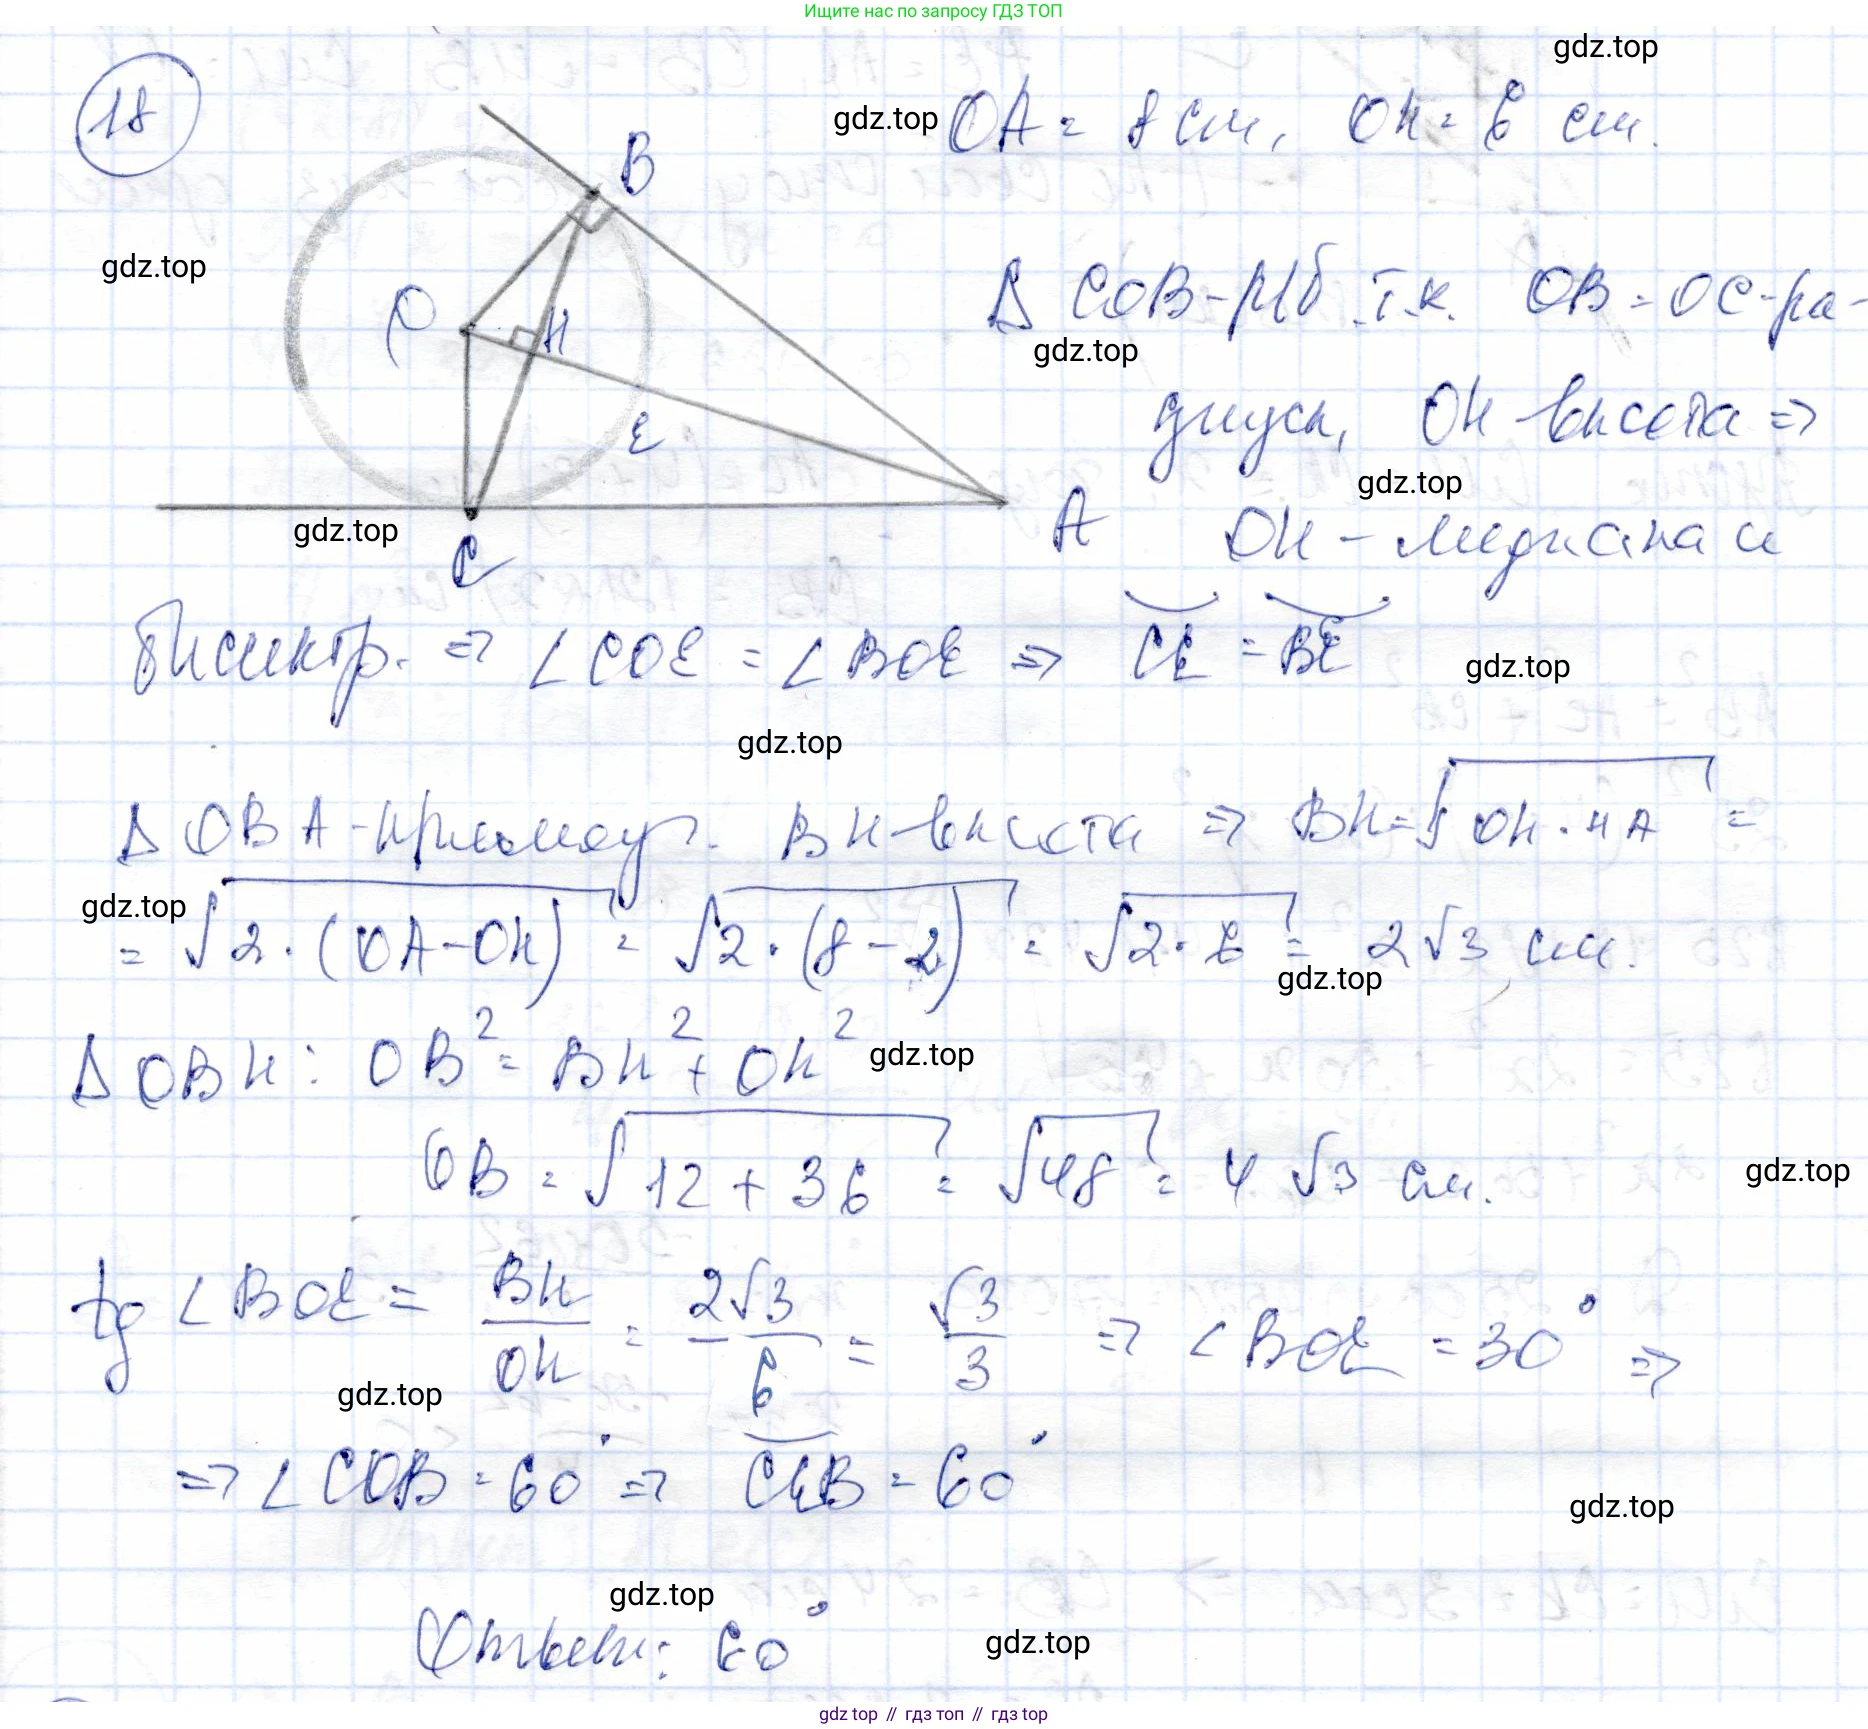 Ищите нас по запросу ГДЗ ТОП
gdz.top
18
gdz.top OA = 8 см, OH = 6 см.
B
gdz.top
O
H
E
C
A
Δ COB - р/б т.к. OB = OC - ра-
gdz.top
диусы, OH - высота =>
gdz.top
gdz.top
OH - медиана и
биссектр. => ∠COE = ∠BOE => CE = BE
gdz.top
gdz.top
Δ OBA - прямоуг. BH - высота => BH = √OH · HA =
gdz.top
= √2 · (OA - OH) = √2 · (8 - 2) = √2 · 6 = 2√3 см.
gdz.top
Δ OBH: OB² = BH² + OH²
gdz.top
OB = √12 + 36 = √48 = 4√3 см.
gdz.top
tg ∠BOE = BH/OH = 2√3/6 = √3/3 => ∠BOE = 30° =>
gdz.top
=> ∠COB = 60° => CEB = 60°
gdz.top
gdz.top
Ответ: 60°
gdz.top
gdz.top // гдз топ // гдз.top